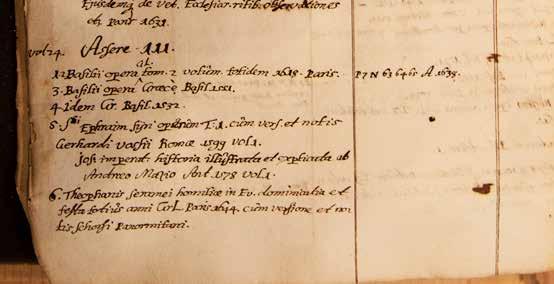 Ejusdem de vet. Ecclesiar. ritib. observationes
etc. Paris 1631.
vol 24. Assere III.
al.
1.2 Basilii opera tom. 2 volum. totidem 1618. Paris. P 7 N 63 64 65 A 1638.
3. Basilii opera Græce Basil. 1551.
4. idem Gr. Basil. 1532.
5. Sti Ephraim syri operum T. 1. cum vers. et notis
Gerhardi Vossii Romæ 1599 vol 1.
Jos. imperat. historia illustrata et explicata ab
Andrea Masio Ant. 1578 vol 1.
6. Theophanis ceramei homiliæ in Ev. dominicalia et
festa totius anni GrL Paris 1644. cum versione et no
tis Scorsi Panormitani.